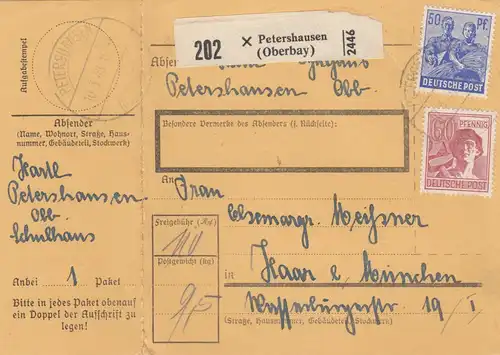 Aufgabestempel
PETERSHAUSEN
Absender
(Name, Wohnort, Straße, Haus-
nummer, Gebäudeteil, Stockwerk)
Hartl
Petershausen
Obb
Schulhaus
Anbei 1 Paket
Bitte in jedes Paket obenauf
ein Doppel der Aufschrift zu
legen!
202 × Petershausen
(Oberbay)
2446
Absender
Petershausen Obb
Besondere Vermerke des Absenders (s. Rückseite):
An Frau
Elsemargr. Meißner
Freigebühr (Rpf)
110
Postgewicht (kg)
9,5
in Haar b. München
Wasserburgerstr 19/I
(Straße, Hausnummer, Gebäudeteil, Stockwerk)
50 Pf.
DEUTSCHE POST
60 PFENNIG
DEUTSCHE POST